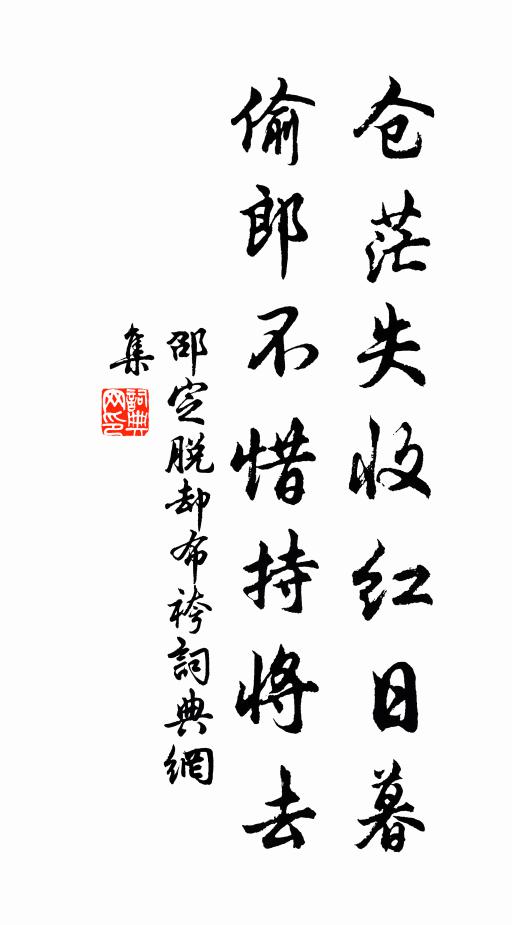 仓茫失收红日暮
偷郎不惜持将去
邵定脱却布袴詞典網
集
詞典
网印